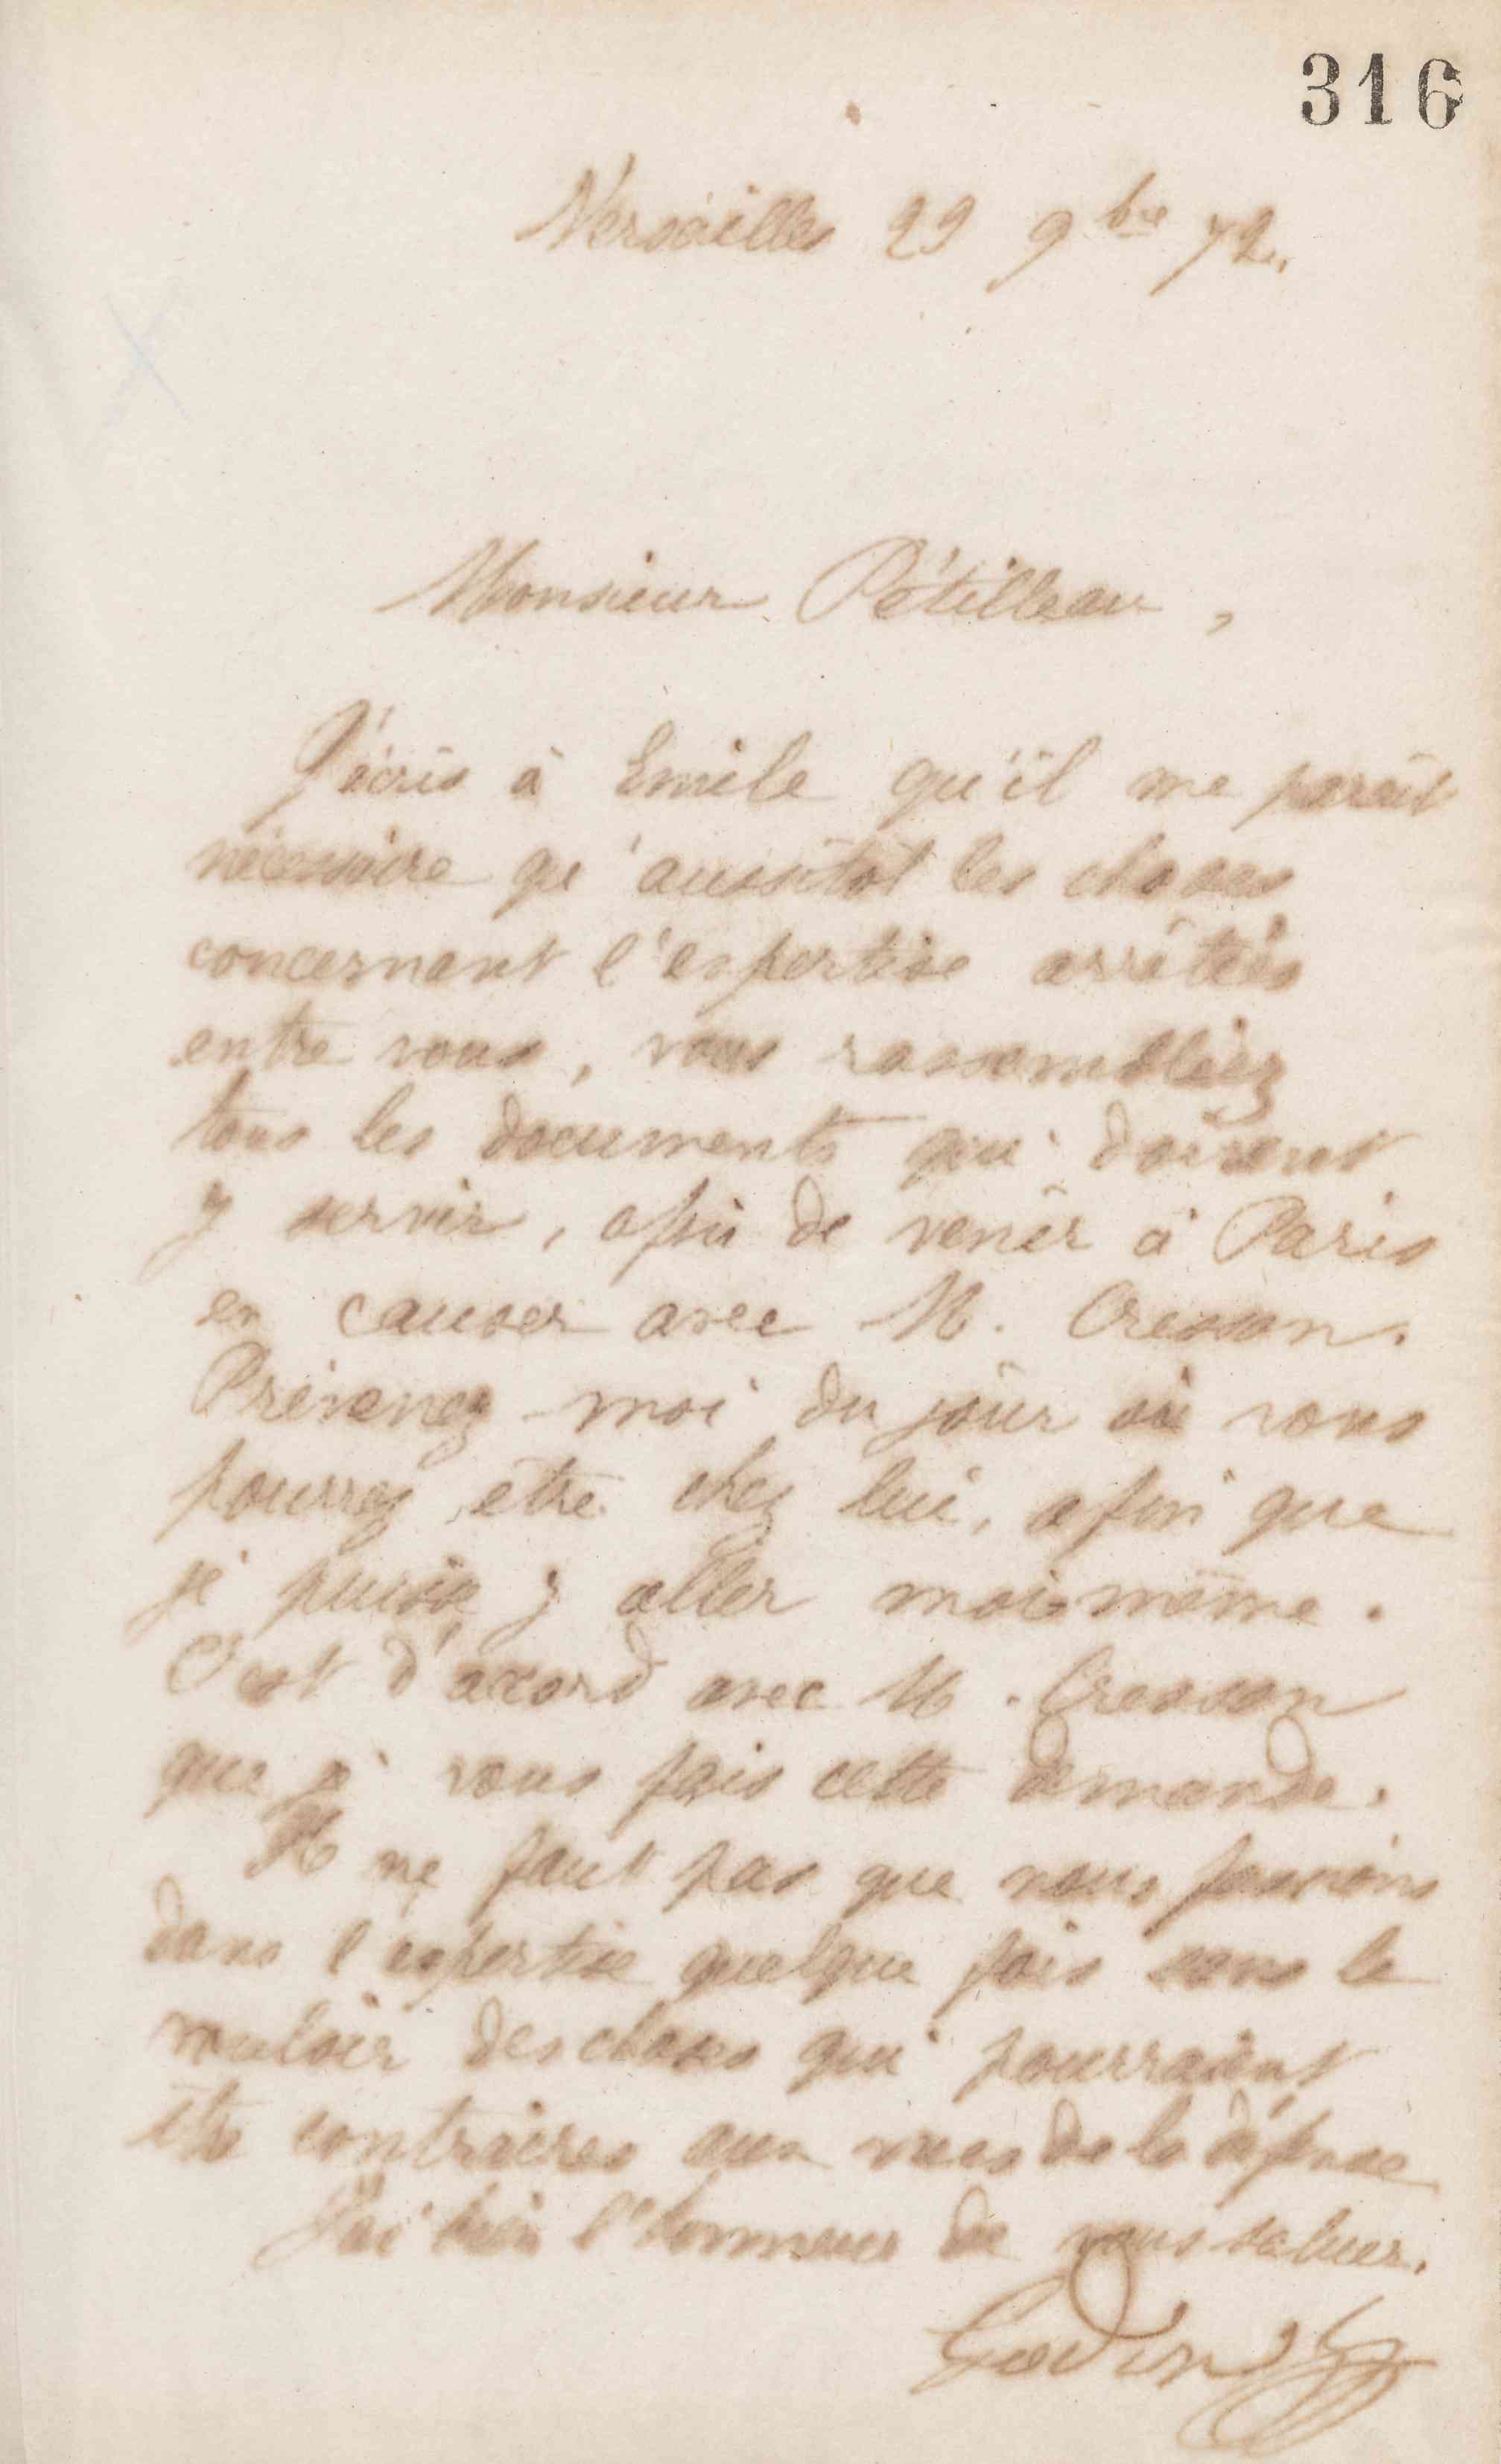 316
Versailles 29 9bre 72.
Monsieur Pétilleau,
J'écris à Emile qu'il me paraît
nécessaire qu'aussitôt les choses
concernant l'expertise arrêtées
entre vous, vous rassembliez
tous les documents qui doivent
y servir, afin de venir à Paris
en causer avec M. Cresson.
Prévenez-moi du jour où vous
pourrez être chez lui, afin que
je puisse y aller moi-même.
C'est d'accord avec M. Cresson
que je vous fais cette demande.
Il ne faut pas que nous fassions
dans l'expertise quelque fois sans le
vouloir des choses qui pourraient
être contraires aux vues de la défense
J'ai bien l'honneur de vous saluer.
Godin